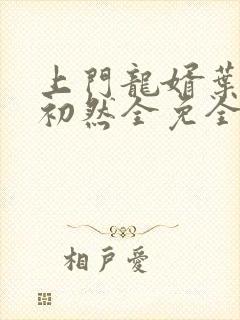 上門龍婿葉
初然全免全
相戶愛